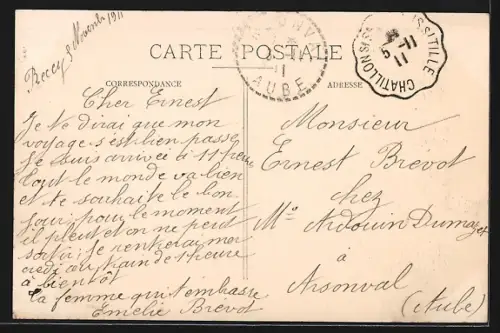 Recey 3 Novembre 1911
CARTE POSTALE
CORRESPONDANCE
ADRESSE
AUBE
CHATILLON S/S
IS S/TILLE
5-11
11
Cher Ernest
Je te dirai que mon
voyage s'est bien passé
Je suis arrivée à 11 heure
tout le monde va bien
et te souhaite le bon
jour, pour le moment
il pleut et on ne peut
sortir, je rentrerai mer
credi au train de 1 heure
à bientôt
Ta femme qui t'embrasse
Emélie Brévot
Monsieur
Ernest Brévot
chez
Mr Ardouin Dumazet
à
Arsonval
(Aube)